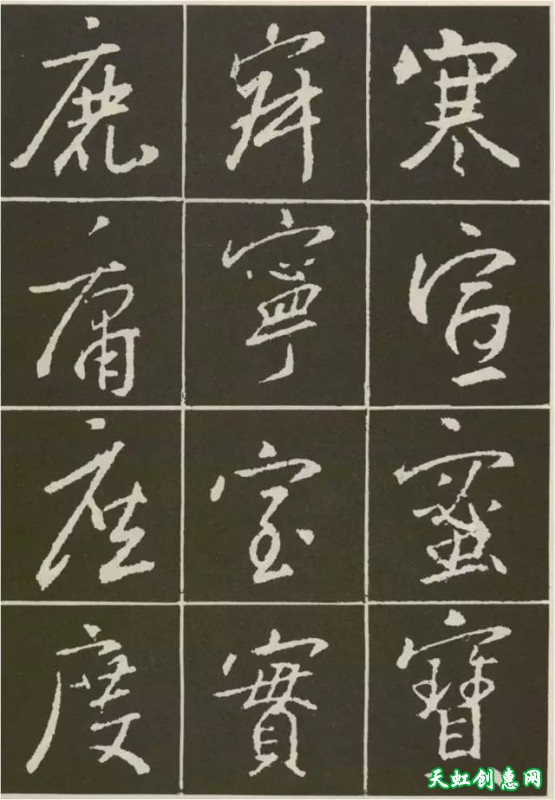 寒宣蜜寶
寧室實
鹿庸度
天虹创惠网